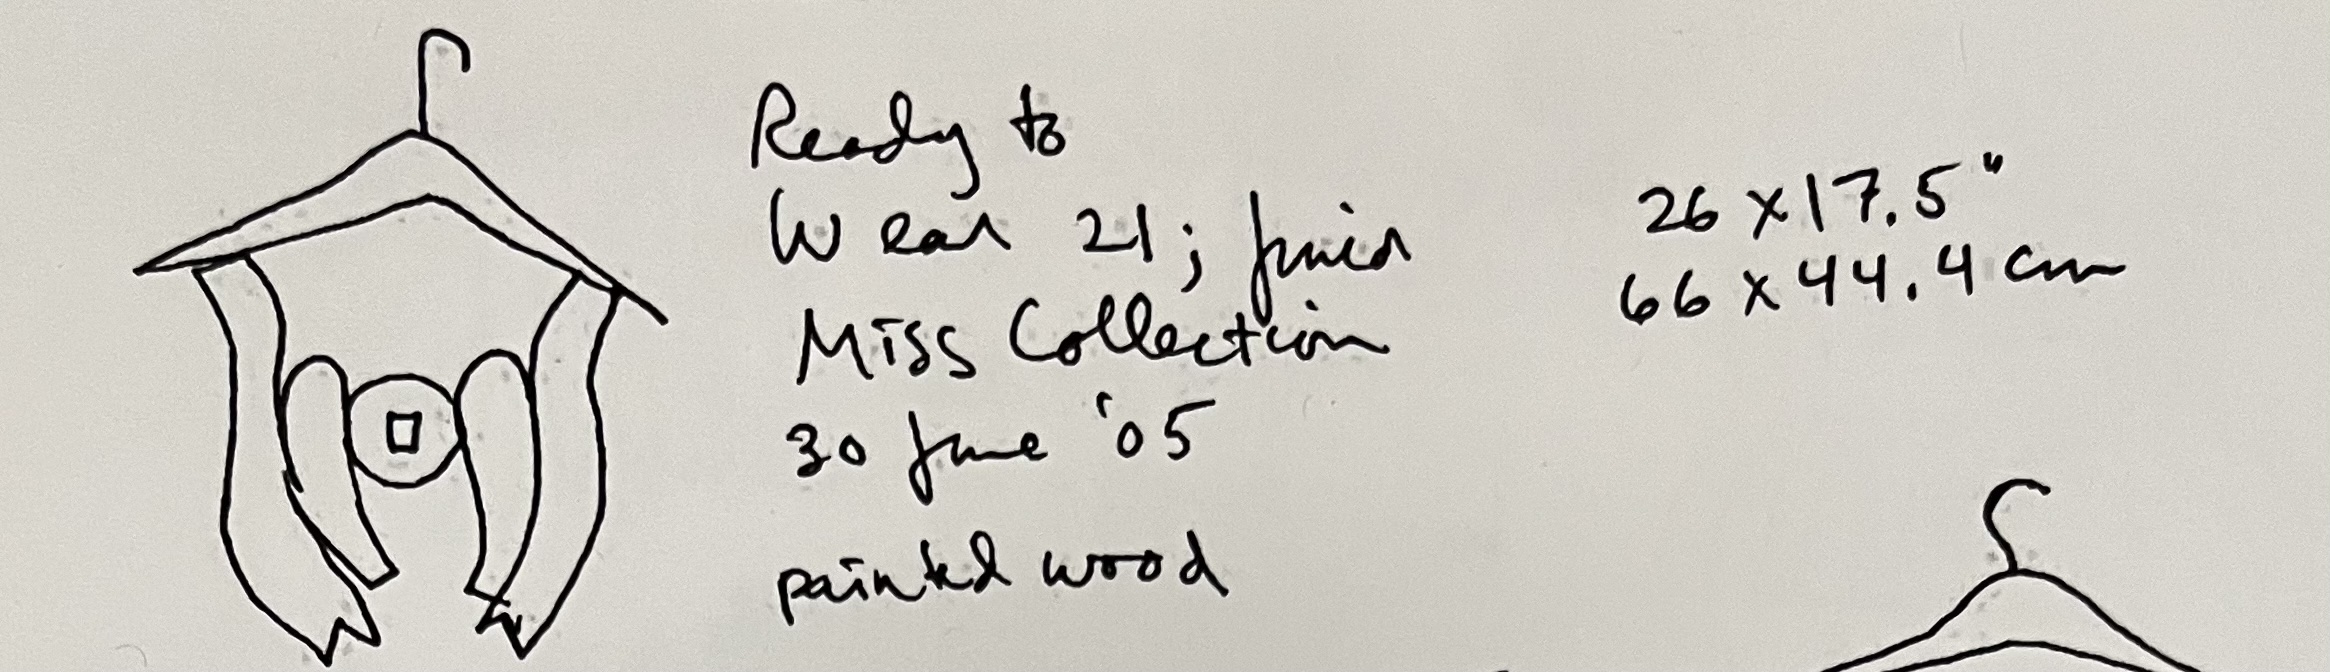 Ready to
Wear 21; Junior
Miss Collection
30 June '05
painted wood
26 x 17.5"
66 x 44.4 cm